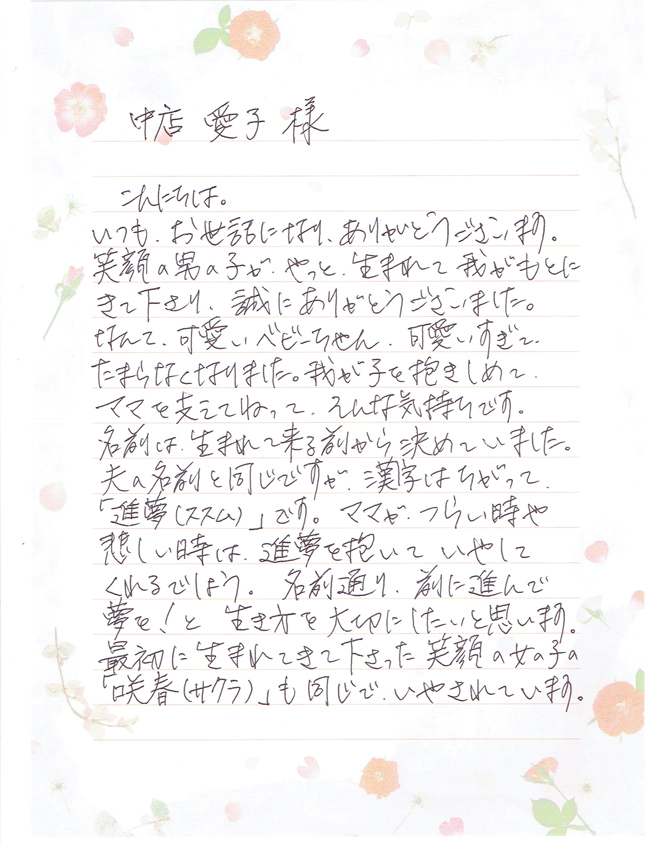 中店 愛子 様
こんにちは。
いつも、お世話になり、ありがとうございます。
笑顔の男の子が、やっと、生まれて我がもとに
きて下さり、誠にありがとうございました。
なんて、可愛いベビーちゃん、可愛いすぎて、
たまらなくなりました。我が子を抱きしめて、
ママを支えてねって、そんな気持ちです。
名前は、生まれて来る前から決めていました。
夫の名前と同じですが、漢字はちがって、
「進夢(ススム)」です。ママが、つらい時や
悲しい時は、進夢を抱いて いやして
くれるでしょう。 名前通り、前に進んで
夢を!と 生き方を大切にしたいと思います。
最初に生まれてきて下さった笑顔の女の子の
「咲春(サクラ)」も同じで、いやされています。